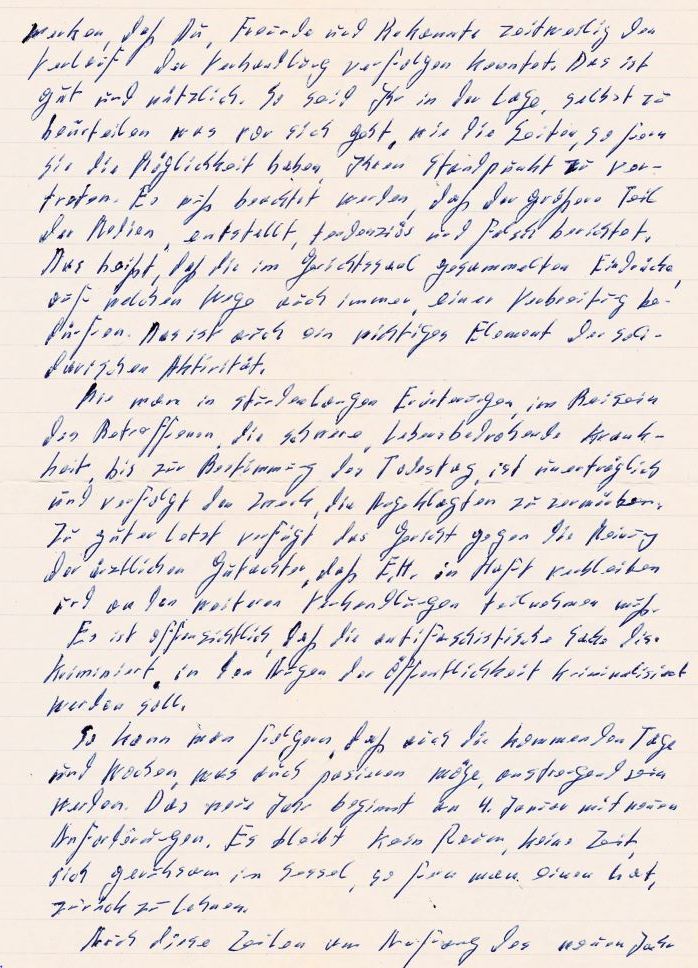 merken, daß Du, Freunde und Bekannte zeitweilig den
Verlauf der Verhandlung verfolgen konntet. Das ist
gut und nützlich. So seid Ihr in der Lage, selbst zu
beurteilen was vor sich geht, wie die Seiten, so fern
sie die Möglichkeit haben, Ihren Standpunkt zu ver-
treten. Es muß beachtet werden, daß der größere Teil
der Medien, entstellt, tendenziös und falsch berichtet.
Das heißt, daß die im Gerichtssaal gesammelten Eindrücke,
auf welchem Wege auch immer, einer Verbreitung be-
dürfen. Das ist auch ein wichtiges Element der soli-
darischen Aktivität.
Wie man in stundenlangen Erörterungen, im Beisein
des Betroffenen, die schwere, lebensbedrohende Krank-
heit, bis zur Bestimmung des Todestag, ist unerträglich
und verfolgt den Zweck, die Angeklagten zu zermürben.
Zu guter Letzt verfügt das Gericht gegen die Meinung
der ärztlichen Gutachter, daß E.H. in Haft verbleiben
und an den weiteren Verhandlungen teilnehmen muß.
Es ist offensichtlich, daß die antifaschistische Sache dis-
kriminiert, in den Augen der Öffentlichkeit kriminalisiert
werden soll.
So kann man folgern, daß auch die kommenden Tage
und Wochen, was auch passieren möge, anstrengend sein
werden. Das neue Jahr beginnt am 4. Januar mit neuen
Anforderungen. Es bleibt kein Raum, keine Zeit,
sich geruhsam im Sessel, so fern man einen hat,
zurück zu lehnen.
Auch diese Zeilen am Anfang des neuen Jahr